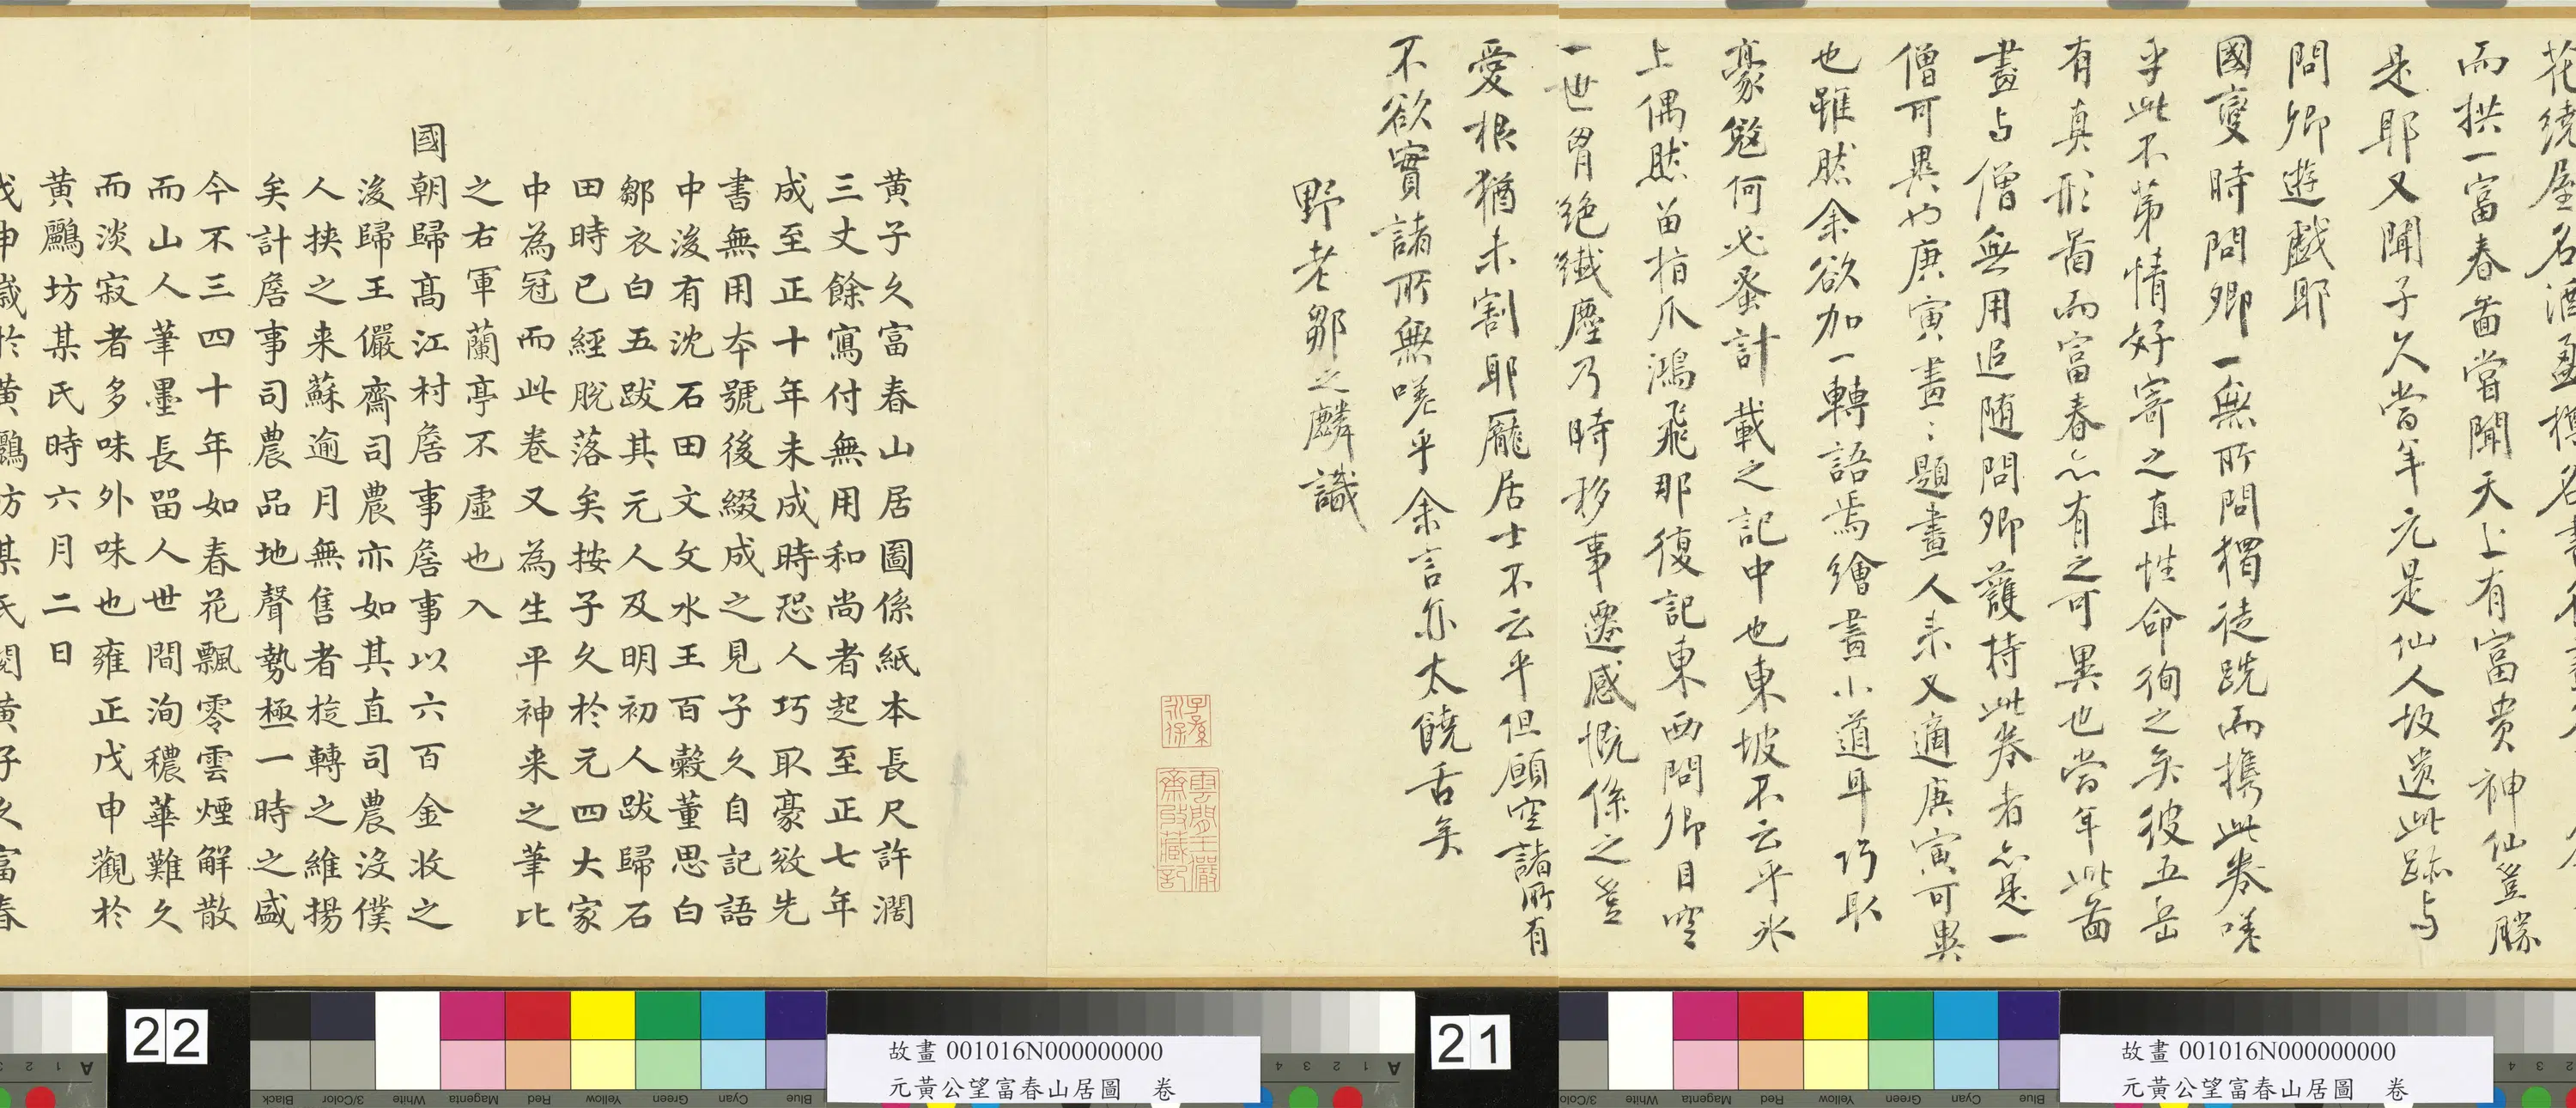 花繞屋名酒盈樽名書名畫
而拱一富春啚嘗聞天上有富貴神仙豈勝
是耶又聞子久當年元是仙人故遺此跡与
問卿遊戲耶
國變時問卿一無所問獨徒跣而携此卷嗟
乎此不第情好寄之直性命徇之矣彼五岳
有真形啚而富春亦有之可異也當年此啚
畫与僧無用追随問卿護持此卷者亦是一
僧可異也庚寅畫畫題畫人来又適庚寅可異
也雖然余欲加一轉語焉繪畫小道耳巧取
豪敓何必蚤計載之記中也東坡不云乎氷
上偶然畱指爪鴻飛那復記東西問卿目空
一世胷絶纎塵乃時移事遷感慨係之豈
愛根猶未割耶龐居士不云乎但願空諸所有
不欲實諸所無嗟乎余言亦太饒舌矣
野老鄒之麟識
黄子久富春山居圖係紙本長尺許濶
三丈餘寫付無用和尚者起至正七年
成至正十年未成時恐人巧取豪敓先
書無用夲號後綴成之見子久自記語
中後有沈石田文文水王百榖董思白
鄒衣白五跋其元人及明初人跋歸石
田時已經脫落矣按子久於元四大家
中為冠而此卷又為生平神来之筆比
之右軍蘭亭不虛也入
國朝歸髙江村詹事詹事以六百金收之
後歸王儼齋司農亦如其直司農沒僕
人挟之来蘇逾月無售者旋轉之維揚
矣計詹事司農品地聲勢極一時之盛
今不三四十年如春花飄零雲煙解散
而山人筆墨長畱人世間洵穠華難久
而淡寂者多味外味也雍正戊申觀於
黄鸝坊某氏時六月二日
戊申歲於黄鸝坊某氏閱黄子久富春
子孫永保
雲間王儼齋收藏記
22
21
故畫 001016N000000000
元黃公望富春山居圖 卷
故畫 001016N000000000
元黃公望富春山居圖 卷
Black
3/Color
White
Magenta
Red
Yellow
Green
Cyan
Blue
A 1 2 3 4
3/Color
White
Magenta
Red
Yellow
Green
Cyan
Blue